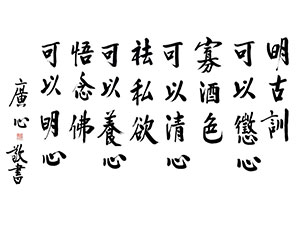 明古訓
可以懲心
寡酒色
可以清心
祛私欲
可以養心
悟念佛
可以明心
廣心敬書